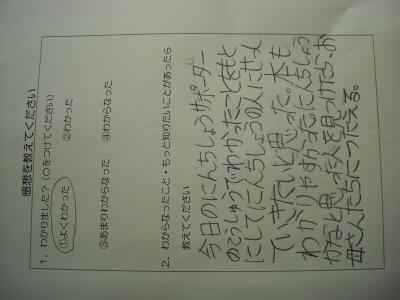 感想を教えてください
1．わかりました？（○をつけてください）
①よくわかった　②わかった
③あまりわからなった　④わからなった
2．わからなったこと・もっと知りたいことがあったら
教えてください
今日のにんちしょうサポーター
のこうしゅうでわかったことをもと
にしてにんちしょうの人にせっ
ていきたいと思った。本も
わかりやすかった。にんちしょう
かなと思った人を見つけたら、お
母さんたちにつたえる。